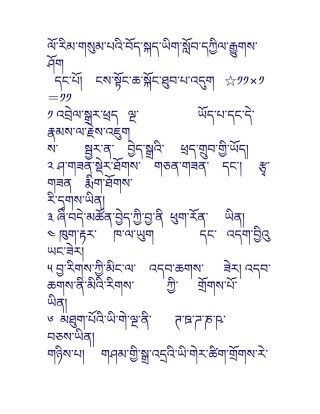 ལོ་རིམ་གསུམ་པའི་བོད་སྐད་ཡིག་སློབ་དཀྱིལ་རྒྱུགས་
ཤོག
དང་པོ། ངས་སྟོང་ཆ་སྐོང་ཐུབ་པ་འདུག ☆༡༡×༡
=༡༡
༡ འབྲེལ་སྒྲར་ཕྲད ལྔ་ ཡོད་པ་དང་དེ་
རྣམས་ལ་རྗེས་འཇུག
ས་ སྦྱར་ན་ བྱེད་སྒྲའི་ ཕྲད་གྲུབ་ཀྱི་ཡོད།
༢ ཤ་གཟན་སྡེར་ཐོགས་ གཅན་གཟན་ དང་། རྩྭ་
གཟན རྨིག་ཐོགས་
རི་དྭགས་ཡིན།
༣ ཞི་བདེ་མཚོན་བྱེད་ཀྱི་བྱ་ནི ཕུག་རོན་ ཡིན།
༤ ཁུག་རྟར་ ཁ་ལ་ཡུག དང་ འདག་བྱིའུ
ཡང་ཟེར།
༥ བྱ་རིགས་ཀྱི་མིང་ལ་ འདབ་ཆགས་ ཟེར། འདབ་
ཆགས་ནི་མིའི་རིགས་ ཀྱི་ གྲོགས་པོ་
ཡིན།
༦ མཐུག་པོའི་ཡི་གེ་ལྔ་ནི་ ཊ་ཋ་ཌ་ཎ་ཥ་
བཅས་ཡིན།
གཉིས་པ། གཤམ་གྱི་སྒྲ་འདྲའི་ཡི་གེར་ཚིག་གྲོགས་རེ་